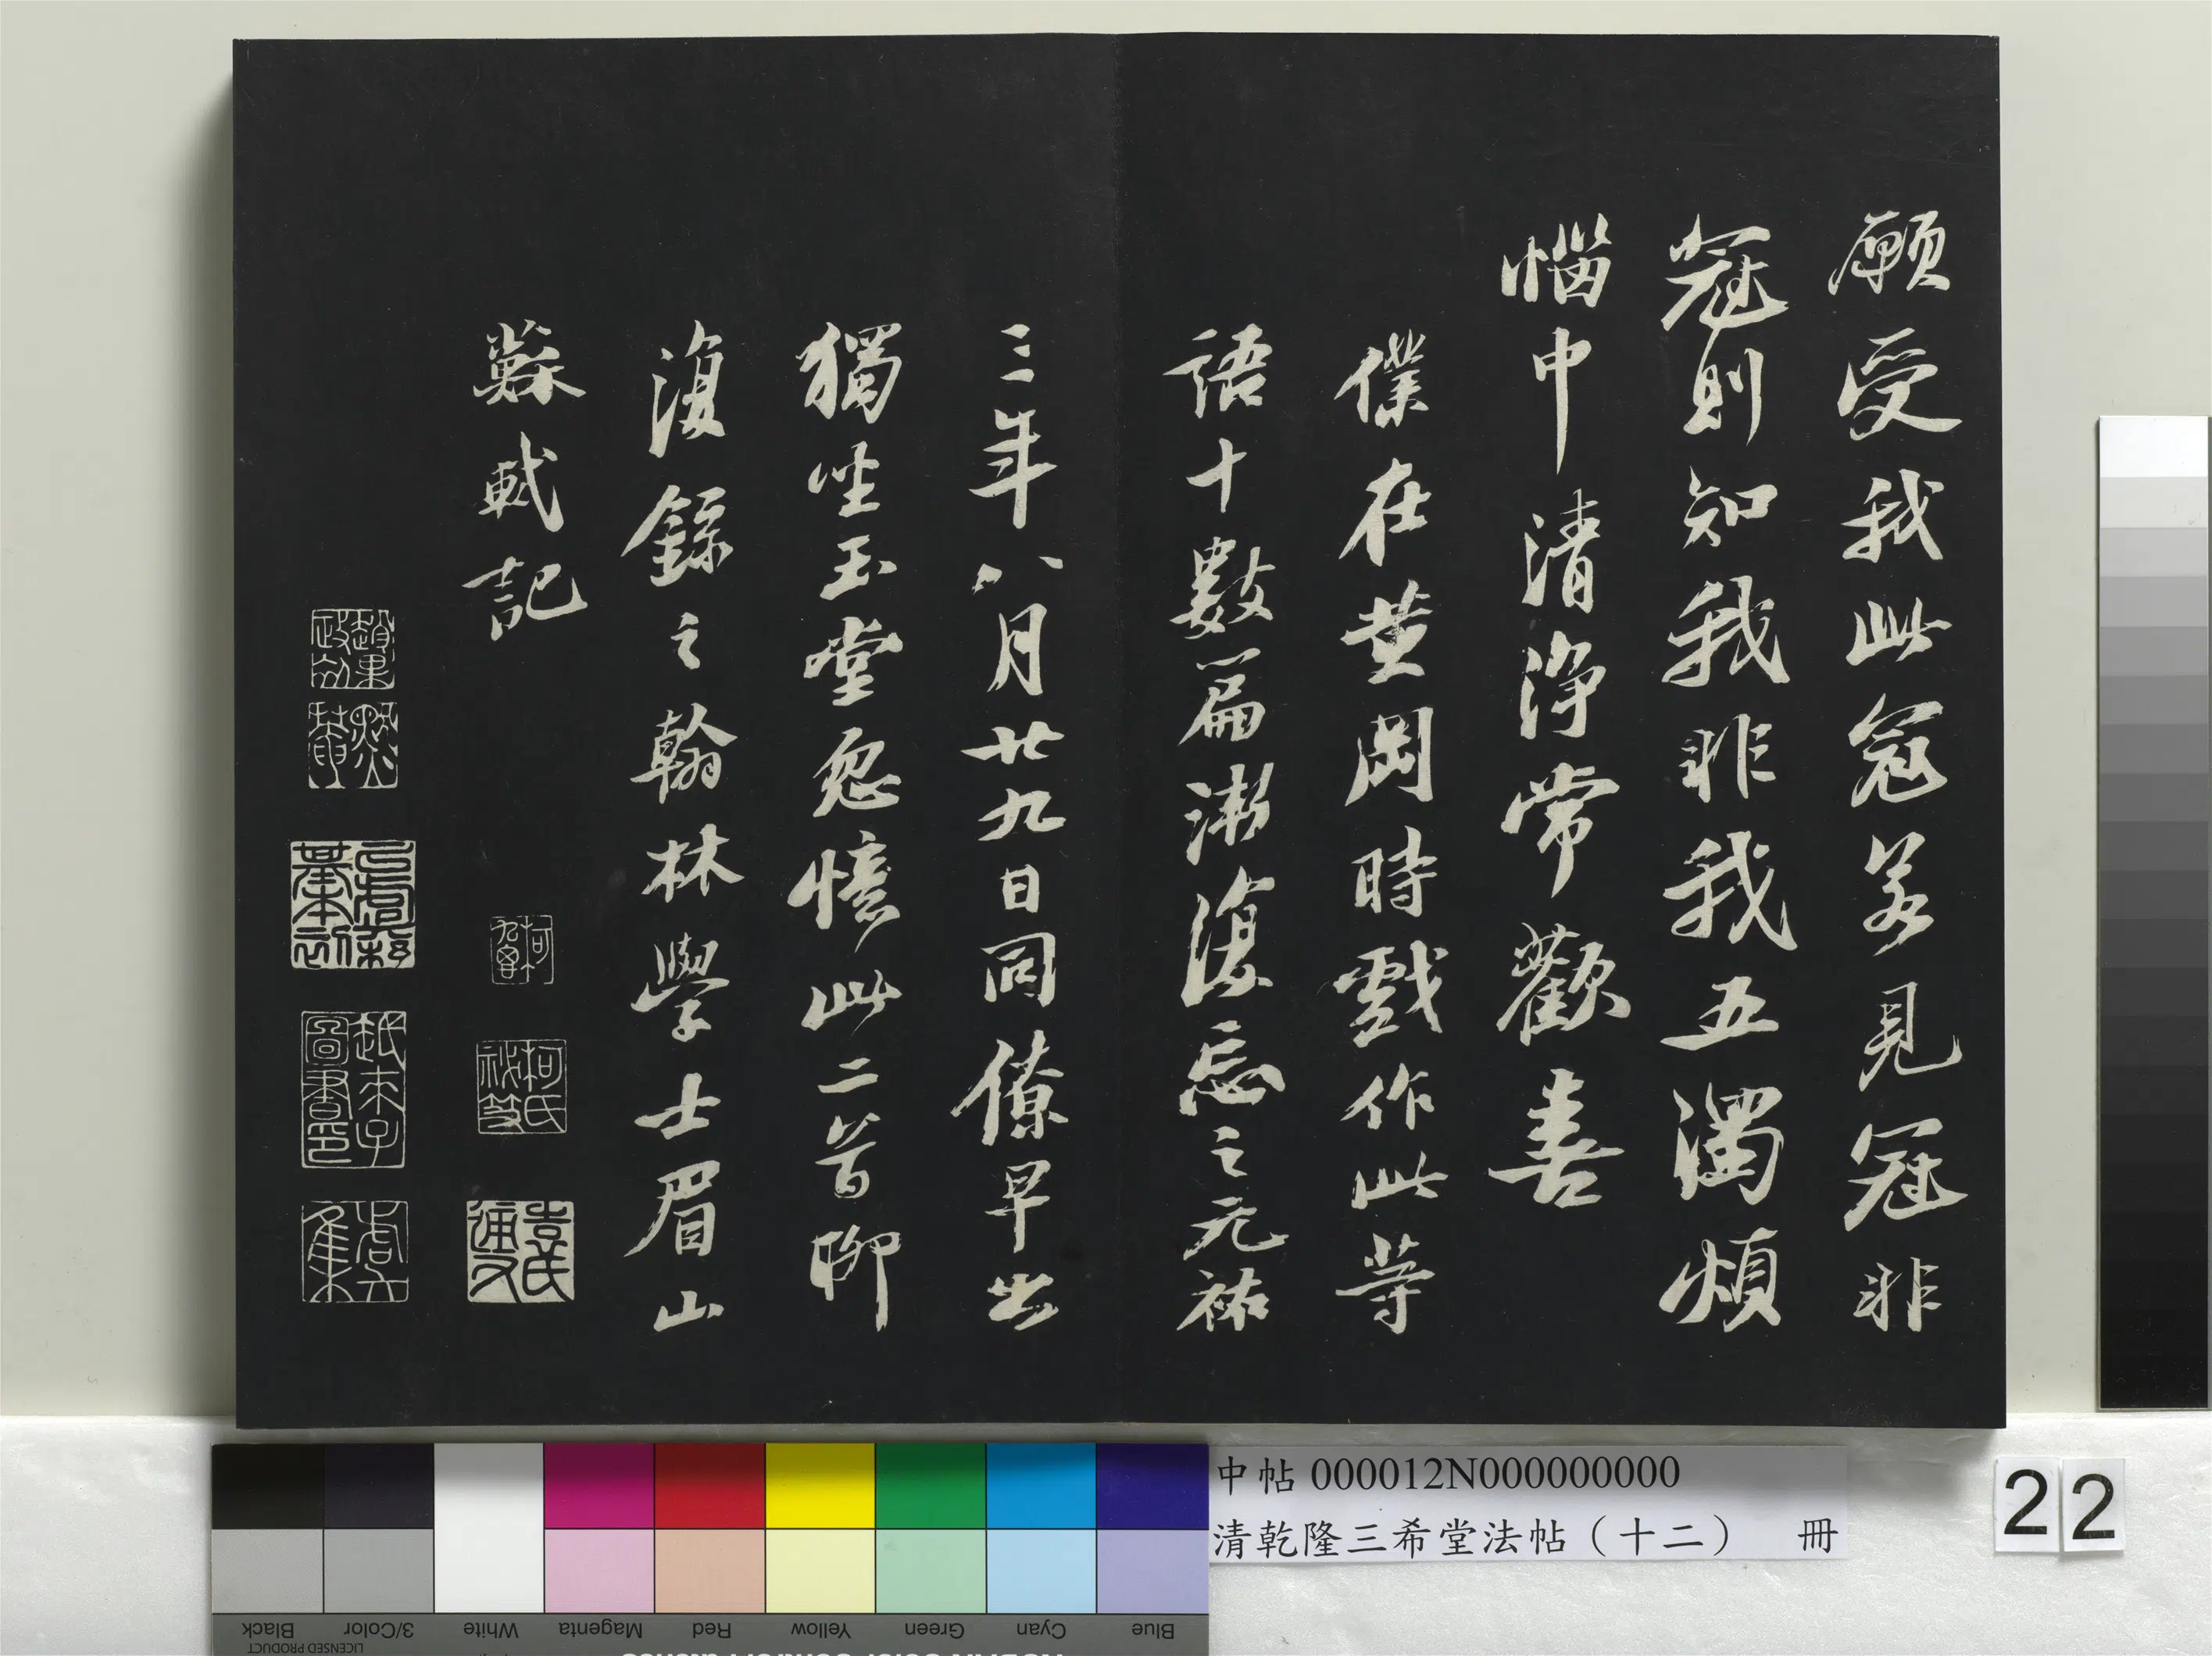 願受我此冠若見冠非
冠則知我非我五濁煩
惱中清淨常歡喜
僕在黃岡時戲作此等
語十數篇漸復忘之元祐
三年八月廿九日同僚早出
獨坐玉堂忽憶此二首聊
復錄之翰林學士眉山
蘇軾記
柯氏
袁氏
中帖 000012N000000000
清乾隆三希堂法帖（十二） 冊
22
Black
3/Color
White
Magenta
Red
Yellow
Green
Cyan
Blue
LICENSED PRODUCT